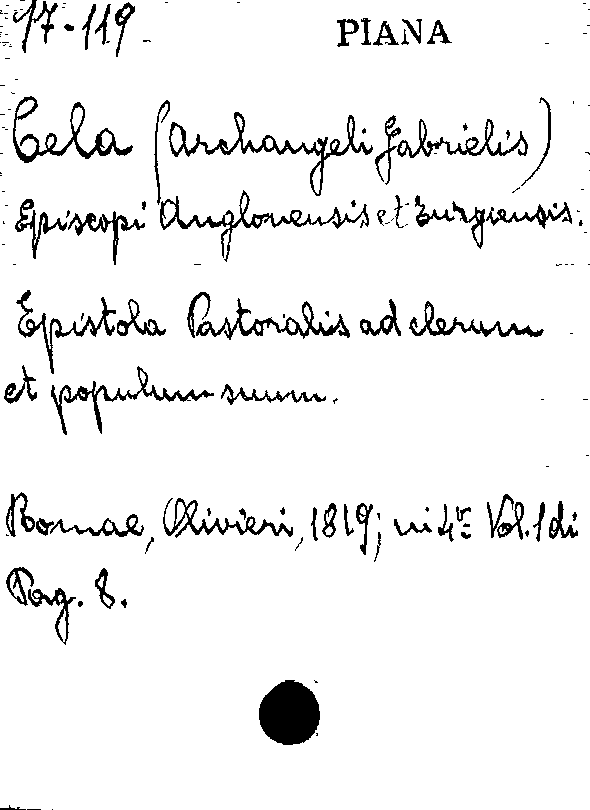 17-119
PIANA
Cela (Archangeli Gabrielis)
Episcopi Anglonensis et Tursiensis.
Epistola Pastoralis ad clerum
et populum suum.
Romae, Olivieri, 1819; in 4º Vol. 1 di
Pag. 8.